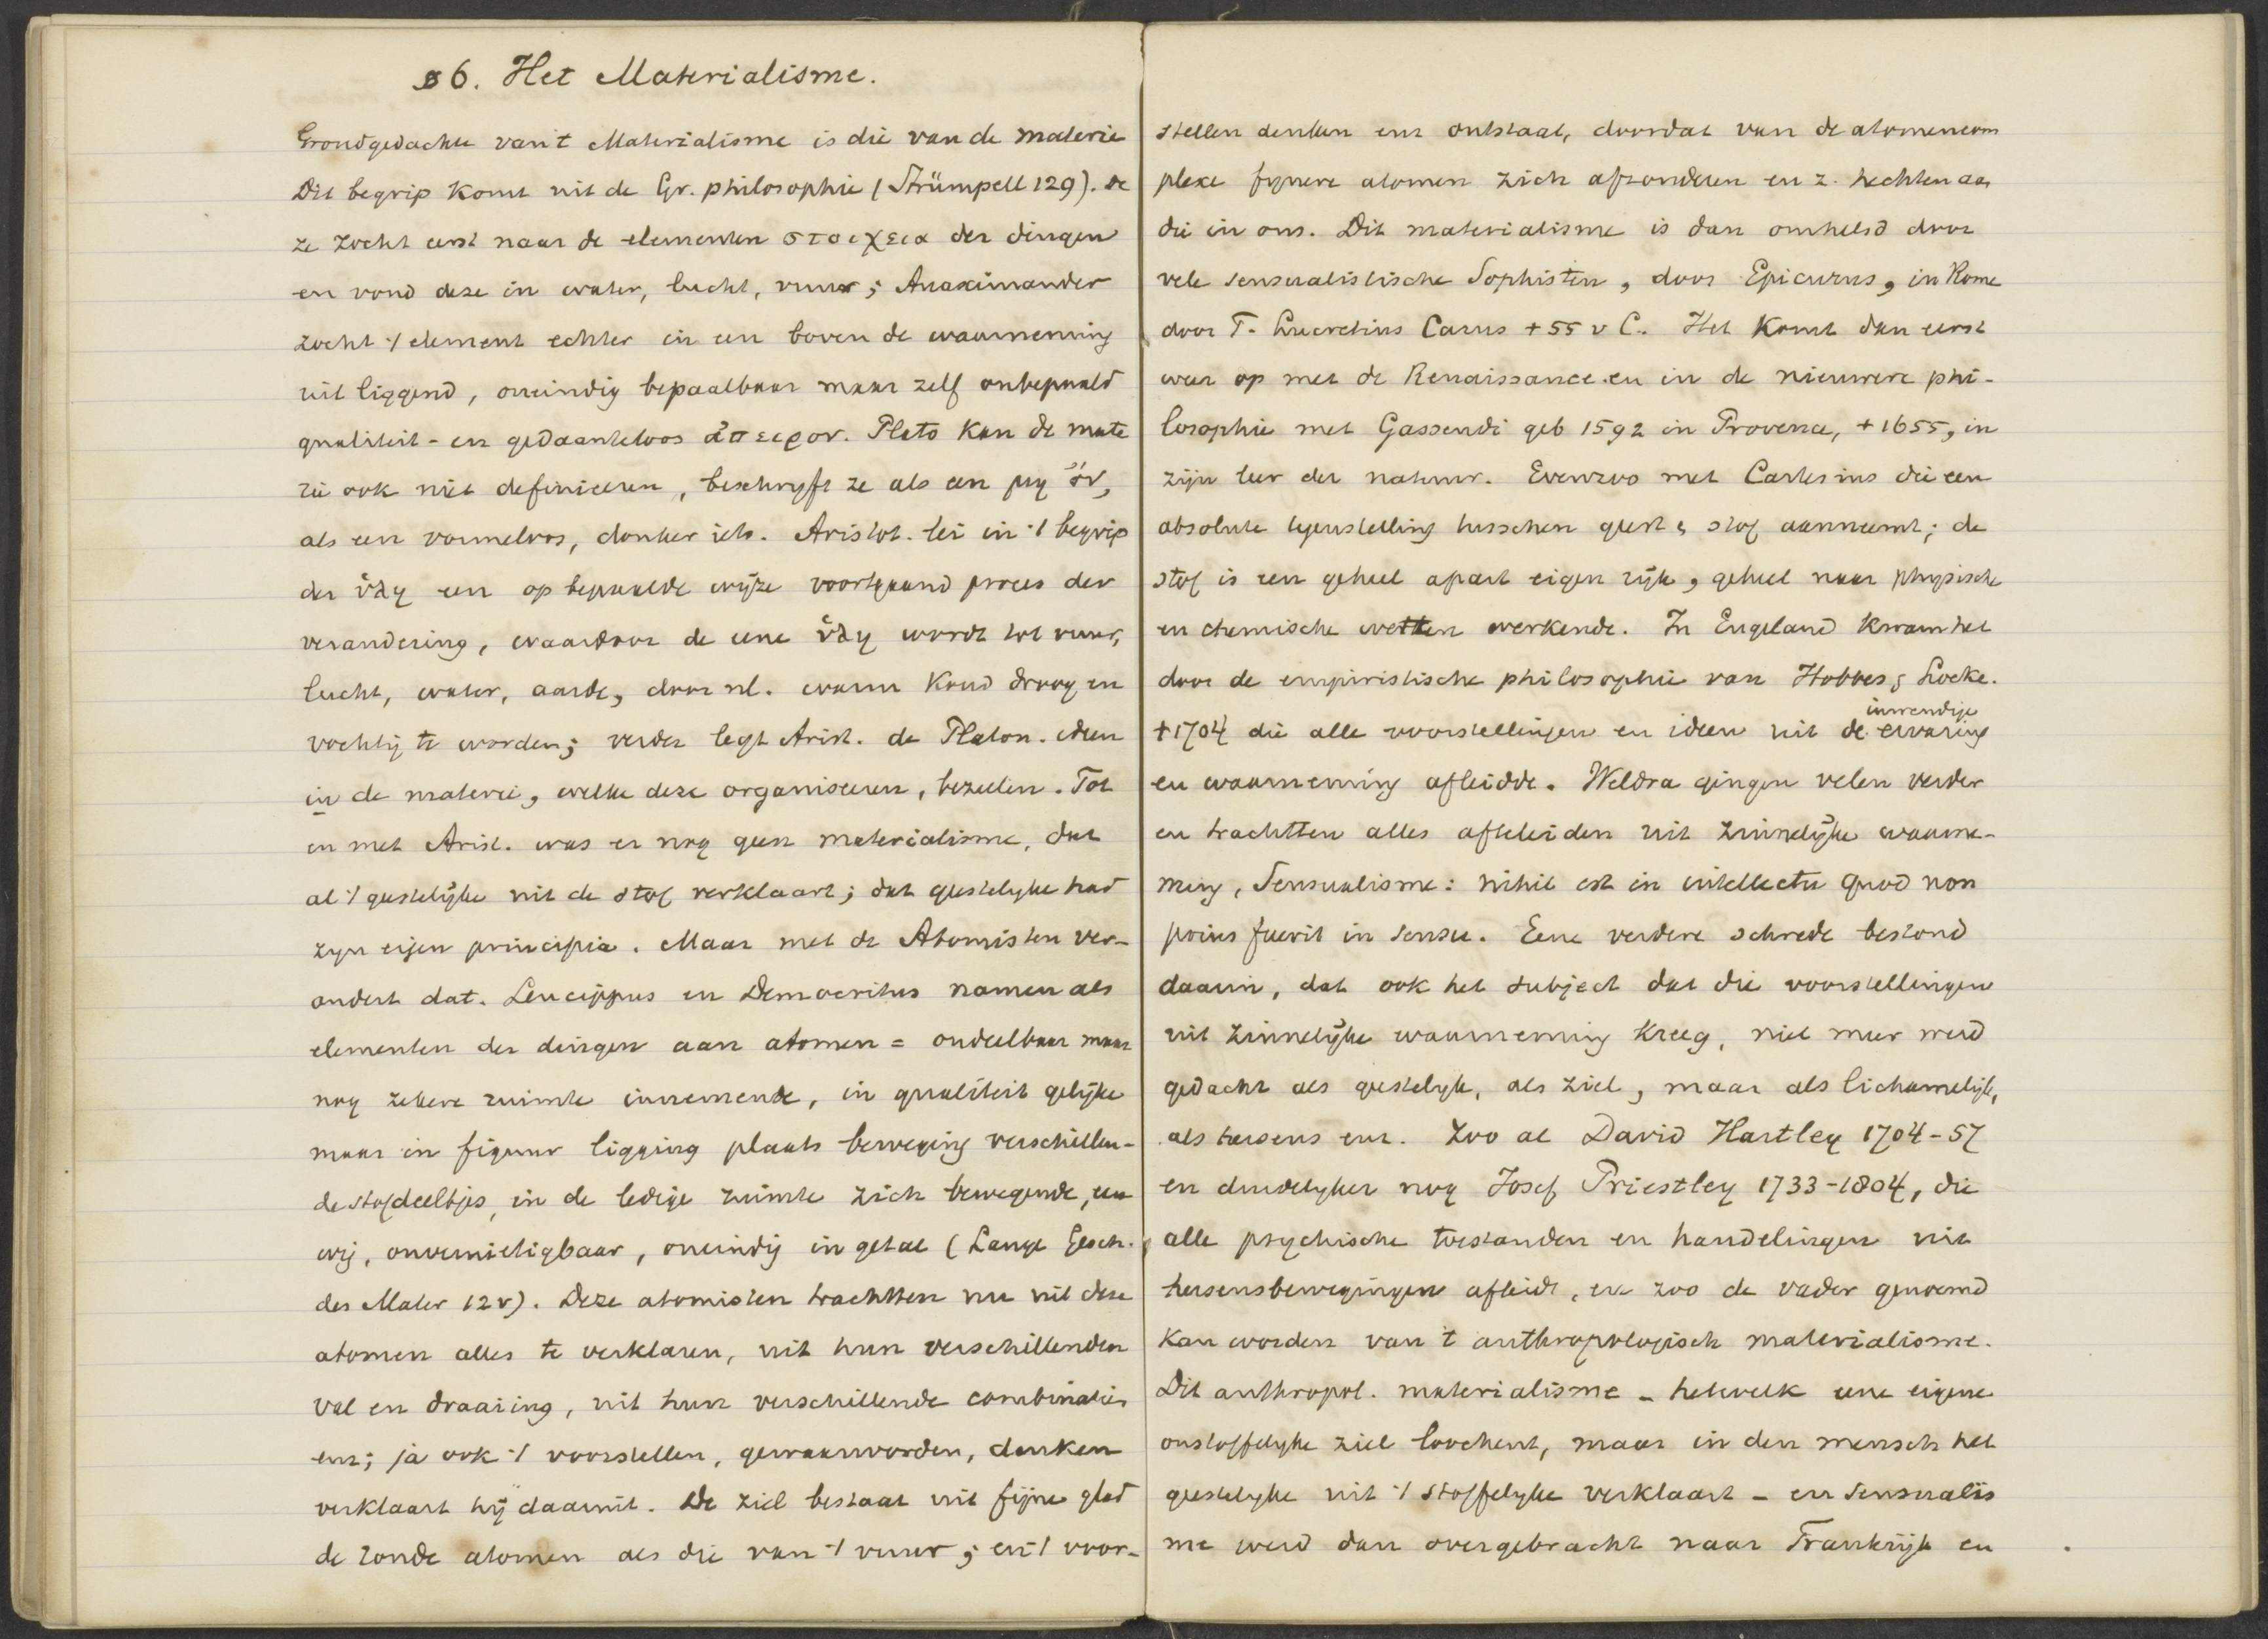 § 6. Het Materialisme.
Grondgedachte van 't Materialisme is die van de materie
Dit begrip komt uit de Gr. philosophie (Strümpell 129). de
ze zocht eerst naar de elementen στοιχεια der dingen
en vond deze in water, lucht, vuur; Anaximander
zocht 't element echter in een boven de waarneming
uit liggend, oneindig bepaalbaar maar zelf onbepaald
qualiteit- en gedaanteloos ἄπειρον. Plato kan de mate
rie ook niet definieeren, beschryft ze als een μη ὄν,
als een vormeloos, donker iets. Aristot. lei in 't begrip
der ὕλη een op bepaalde wijze voortgaand proces der
verandering, waardoor de eene ὕλη wordt tot vuur,
lucht, water, aarde, door nl. warm koud droog en
vochtig te worden; verder legt Arist. de Platon. ideen
in de materie, welke deze organiseeren, bezielen. Tot
en met Arist. was er nog geen materialisme, dat
al 't geestelijke uit de stof verklaart; dat geestelyke had
zyn eigen principia. Maar met de Atomisten ver-
andert dat. Leucippus en Democritus namen als
elementen der dingen aan atomen = ondeelbaar maar
nog zekere ruimte innemende, in qualiteit gelijke
maar in figuur ligging plaats beweging verschillen-
de stofdeeltjes, in de ledige ruimte zich bewegende, eeu
wig, onvernietigbaar, oneindig in getal (Lange Gesch.
des Mater 12v). Deze atomisten trachtten nu uit deze
atomen alles te verklaren, uit hun verschillenden
val en draaiing, uit hun verschillende combinaties
enz; ja ook 't voorstellen, gewaarworden, denken
verklaart hij daaruit. De ziel bestaat uit fijne glad
de ronde atomen als die van 't vuur; en 't voor-
stellen denken enz ontstaat, doordat van de atomencom
plexe fynere atomen zich afzonderen en z. hechten aan
die in ons. Dit materialisme is dan omhelsd door
vele sensualistische Sophisten, door Epicurus, in Rome
door T. Lucretius Carus + 55 v C. Het komt dan eerst
weer op met de Renaissance en in de nieuwere phi-
losophie met Gassendi geb 1592 in Provence, + 1655, in
zijn leer der natuur. Evenzoo met Cartesius die een
absolute tegenstelling tusschen geest & stof aanneemt; de
stof is een geheel apart eigen rijk, geheel naar physische
en chemische wetten werkende. In Engeland kwam het
door de empiristische philosophie van Hobbes & Locke.
+1704 die alle voorstellingen en ideen uit de inwendige ervaring
en waarneming afleidde. Weldra gingen velen verder
en trachtten alles afteleiden uit zinnelijke waarne-
ming, Sensualisme: nihil est in intellectu quod non
prius fuerit in sensu. Eene verdere schrede bestond
daarin, dat ook het subject dat die voorstellingen
uit zinnelijke waarneming kreeg, niet meer werd
gedacht als geestelyk, als ziel, maar als lichamelijk,
als hersens enz. Zoo al David Hartley 1704-57
en duidelyker nog Josef Priestley 1733-1804, die
alle psychische toestanden en handelingen uit
hersensbewegingen afleidt, en zoo de vader genoemd
kan worden van 't anthropologisch materialisme.
Dit anthropol. materialisme - hetwelk eene eigene
onstoffelyke ziel loochent, maar in den mensch het
geestelyke uit 't stoffelyke verklaart - en sensualis
me werd dan overgebracht naar Frankrijk en